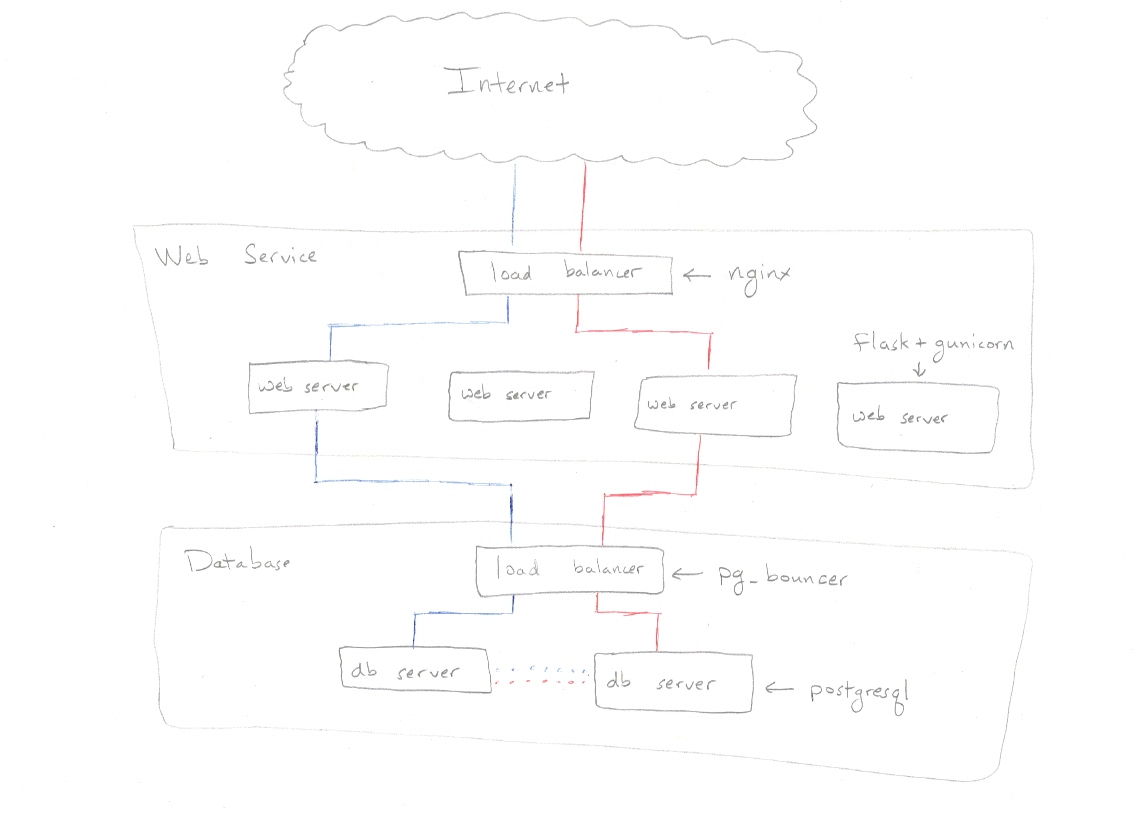 Internet
Web Service
load balancer ← nginx
flask + gunicorn
web server
web server
web server
web server
Database
load balancer ← pg_bouncer
db server
db server ← postgresql